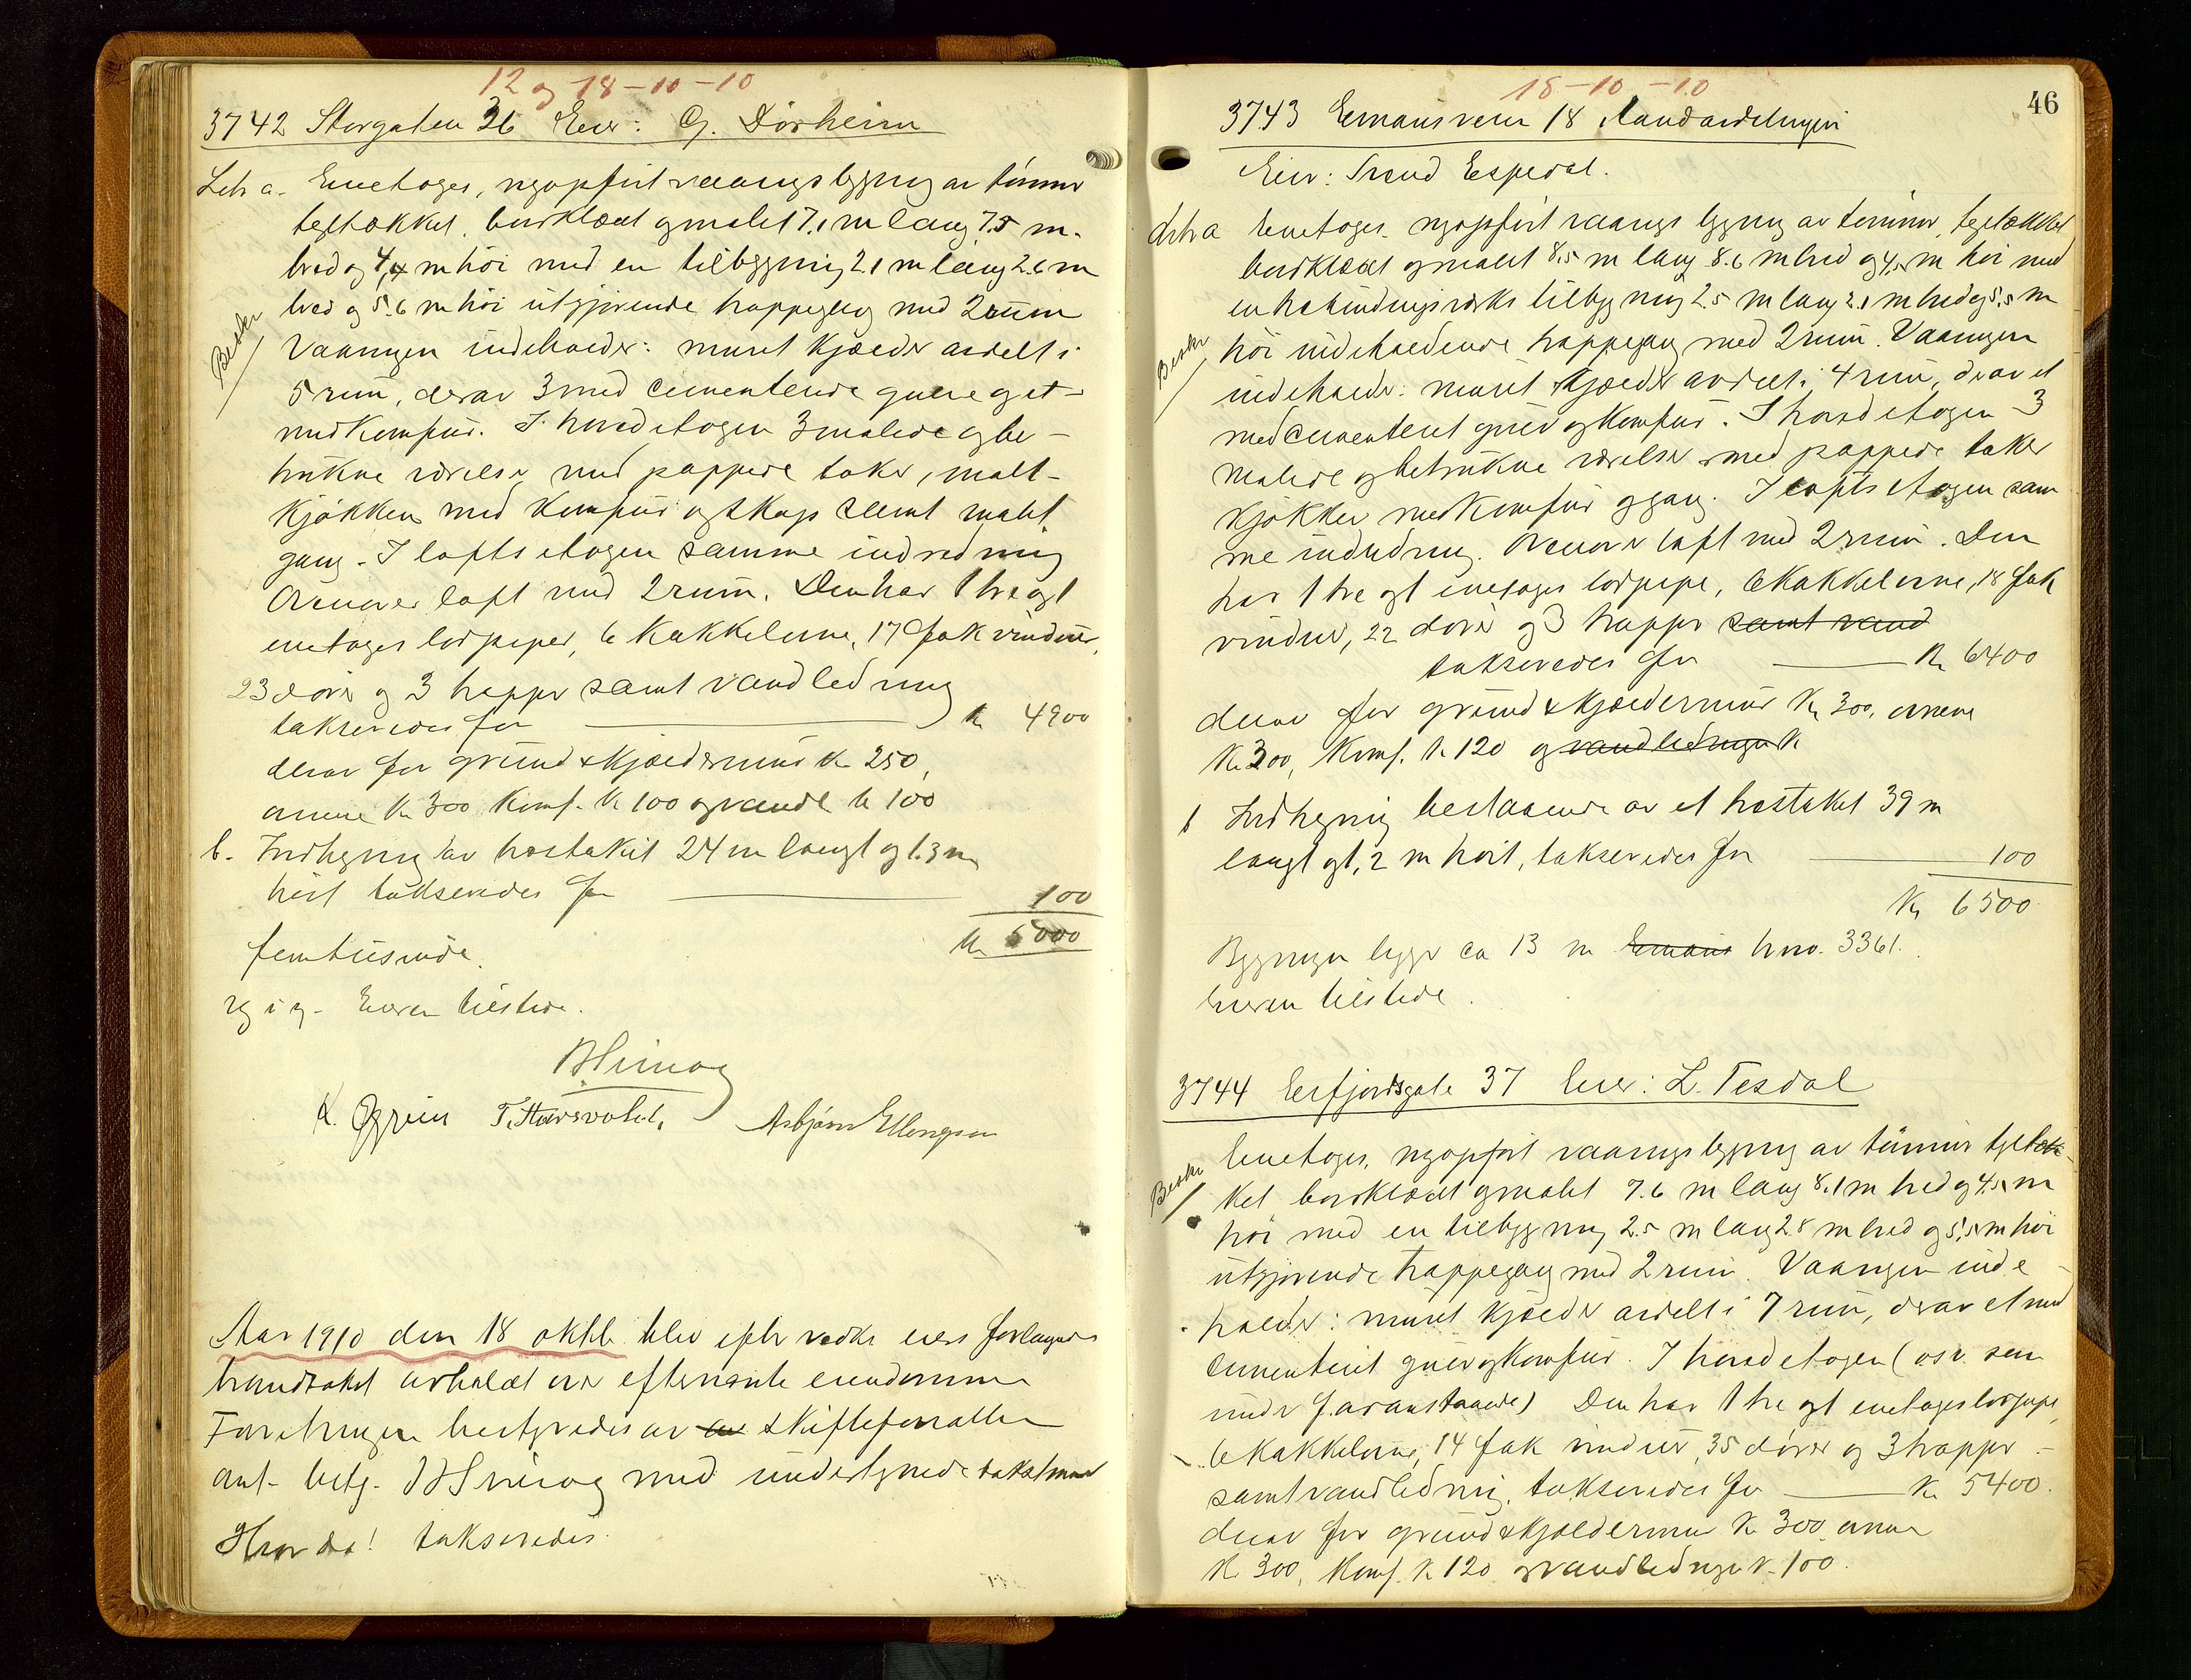 12 og 18-10-10
3742 Storgaten 36 Eier: G. Dørheim
Litr a. Enetages, nyopført vaaningsbygning av tømmer
tegltækket, bordklædt og malet 7.1 m lang 7.5 m.
bred og 4,4 m høi med en tilbygning 2.1 m lang 2.6 m
bred og 5.6 m høi utgjørende trappegang med 2 rum
Beskr
Vaaningen indeholder: muret kjælder avdelt i
5 rum, derav 3 med cementerede gulve og et
med komfur. I hovedetagen 3 malede og be-
trukne værelser med pappede taker, malt
kjøkken med komfur og skap samt malet
gang. I loftsetagen samme indredning
Ovenover loft med 2 rum. Den har 1 tre og 1
enetages lodpiper, 6 kakkelovne, 17 fak vinduer,
23 dører og 3 trapper samt vandledning
takseredes for kr 4900
derav for grund & kjældermur kr 250,
ovnene kr 300 Komf. kr 100 og vandl kr 100
b. Indhegning av træstakit 24 m langt og 1.3 m
høit takseredes for 100
kr 5000
femtusinde.
Eieren tilstede.
K. Øgreid T. Haarsvold. Asbjørn Ellingsen
Aar 1910 den 18 oktb blev efter vedk. eiers forlangende
brandtakst avholdt over efternævnte eiendomme
Forretningen bestyredes av skifteforvalter
aut. betj. med undertegnede takstmænd
Hvor da! takseredes.
18-10-10
46
3743 Emausveien 18 Aandavdelingen
Eier: Trond Espedal.
Litr a Enetages nyopført vaaningsbygning av tømmer, teglækket
bordklædt og malet 8.5 m lang 8.6 m bred og 4.5 m høi med
en utbindingsværks tilbygning 2.5 m lang 2.1 m bred og 5.5 m
Beskr
høi indeholdende trappegang med 2 rum. Vaaningen
indeholder: muret kjælder avdelt i 4 rum, derav et
med cementeret gulv og komfur. I hovedetagen 3
malede og betrukne værelser med pappede taker
kjøkken med komfur og gang. I loftsetagen sam
me indredning. Ovenover loft med 2 rum. Den
har 1 tre og 1 enetages lodpipe, 6 kakkelovne, 18 fak
vinduer, 22 dører og 3 trapper samt vand
takseredes for kr 6400
derav for grund & kjældermur kr 300, ovnene
kr 300, Komf. kr 120 og vandledningen kr
b Indhegning bestaaende av et træstakit 39 m
langt og 1,2 m høit, takseredes for 100
kr 6500
Bygningen ligger ca 13 m Emaus hno. 3361.
Eieren tilstede.
3744 Erfjordsgate 37 Eier: L. Tesdal
Enetages, nyopført vaaningsbygning av tømmer tegltæk
Beskr
ket, bordklædt og malet 7.6 m lang 8.1 m bred og 4.5 m
høi med en tilbygning 2.5 m lang 2.8 m bred og 5.5 m høi
utgjørende trappegang med 2 rum. Vaaningen inde
holder: muret kjælder avdelt i 7 rum, derav et med
cementeret gulv og komfur. I hovedetagen (osv. som
under foranstaaende) Den har 1 tre og 1 enetages lodpipe
6 kakkelovne, 14 fak vinduer, 35 dører og 3 trapper
samt vandledning, takseredes for kr 5400.
derav for grund & kjældermur kr 300 ovnene
kr 300, Komf. kr 120 og vandledningen kr 100.